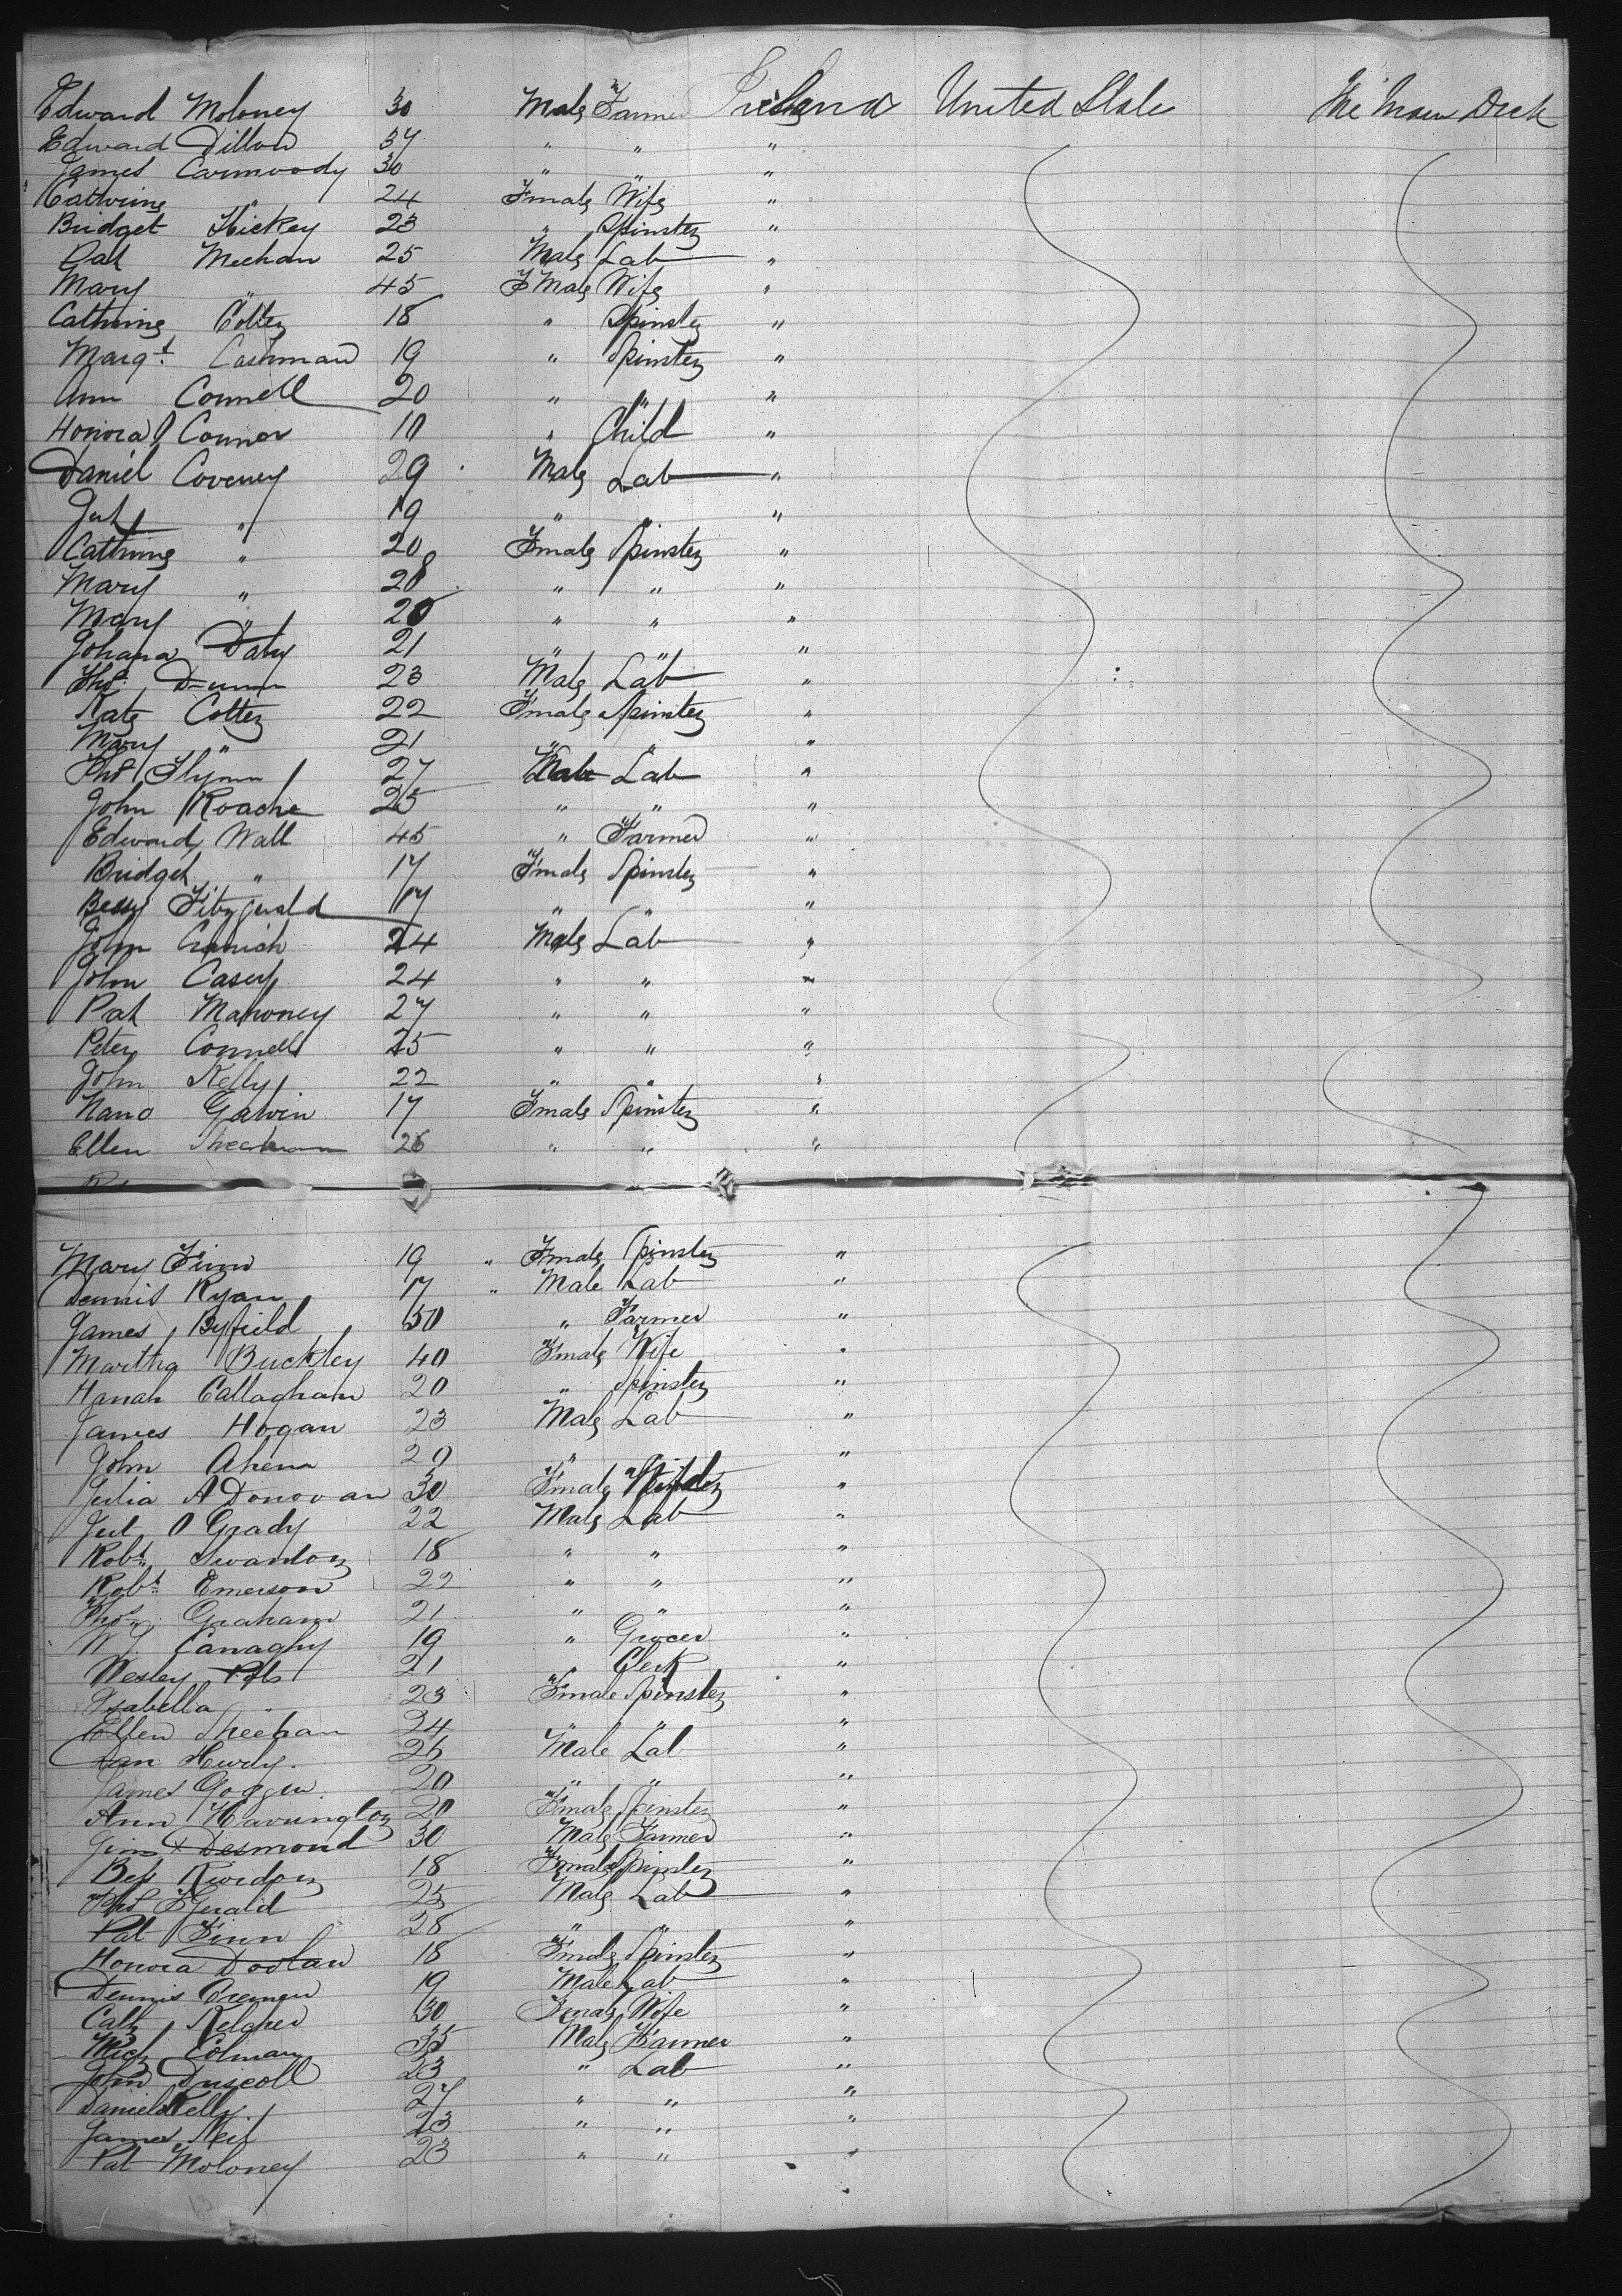 Edward Moloney 30 Male Farmer Ireland United State The Main Deck
Edward Dillon 37 " " "
James Carmoody 30 " " "
Cathrine " 24 Fmale Wife "
Bridget Hickey 23 " Spinster "
Pat Meehan 25 Male Lab "
Mary " 45 Fmale Wife "
Cathrine Cotter 18 " Spinster "
Margt. Cashman 19 " Spinster "
Ann Connell 20 " " "
Honora O Connor 10 " Child "
Daniel Coveney 29 Male Lab "
" 19 " " "
Cathrine " 20 Fmale Spinster "
Mary " 28 " " "
Mary " 20 " " "
Johana Daly 21 " " "
Thos. Dunn 23 Male Lab "
Kate Cotter 22 Fmale Spinster "
Mary " 21 " " "
Thos Flynn 27 Male Lab "
John Roache 25 " " "
Edward Wall 45 " Farmer "
Bridget " 17 Fmale Spinster "
Bessy Fitzgerald 17 " " "
John 24 Male Lab "
John Casey 24 " " "
Pat Mahoney 27 " " "
Peter Connell 25 " " "
John Kelly 22 " " "
Nano Galvin 17 Fmale Spinster "
Ellen Sheehan 26 " " "
Mary Finn 19 " Fmale Spinster "
Dennis Ryan 17 " Male Lab "
James Byfield 50 " Farmer "
Martha Buckley 40 Fmale Wife "
Hanah Callaghan 20 " Spinster "
James Hogan 23 Male Lab "
John Ahern 20 " " "
Julia A Donovan 30 Fmale "
O Grady 22 Male Lab "
Robt. Swanton 18 " " "
Robt. Emerson 22 " " "
Thos. Graham 21 " " "
Wm Canaghy 19 " Grocer "
Wesley 21 " Clerk "
Isabella " 23 Fmale Spinster "
Ellen Sheehan 24 " " "
Dan Hurly. 26 Male Lab "
James Goggin. 20 " " "
Ann Harrington 20 Fmale Spinster "
Jim x Desmond 30 Male Farmer "
Bess Riordon 18 Fmale Spinster "
Thos FGerald 25 Male Lab "
Pat Finn 28 " " "
Honora Doolan 18 Fmale Spinster "
Dennis Cremen 19 Male Lab "
Cath Kelaher 30 Fmale Wife "
Mich Colman 35 Male Farmer "
John Driscoll 23 " Lab "
Daniel Kelly 27 " " "
James Neil 23 " " "
Pat Moloney 23 " " "